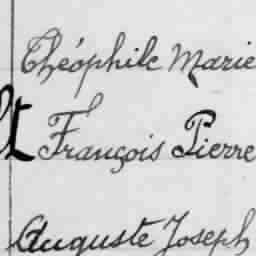 Théophile Marie
François Pierre
Auguste Joseph